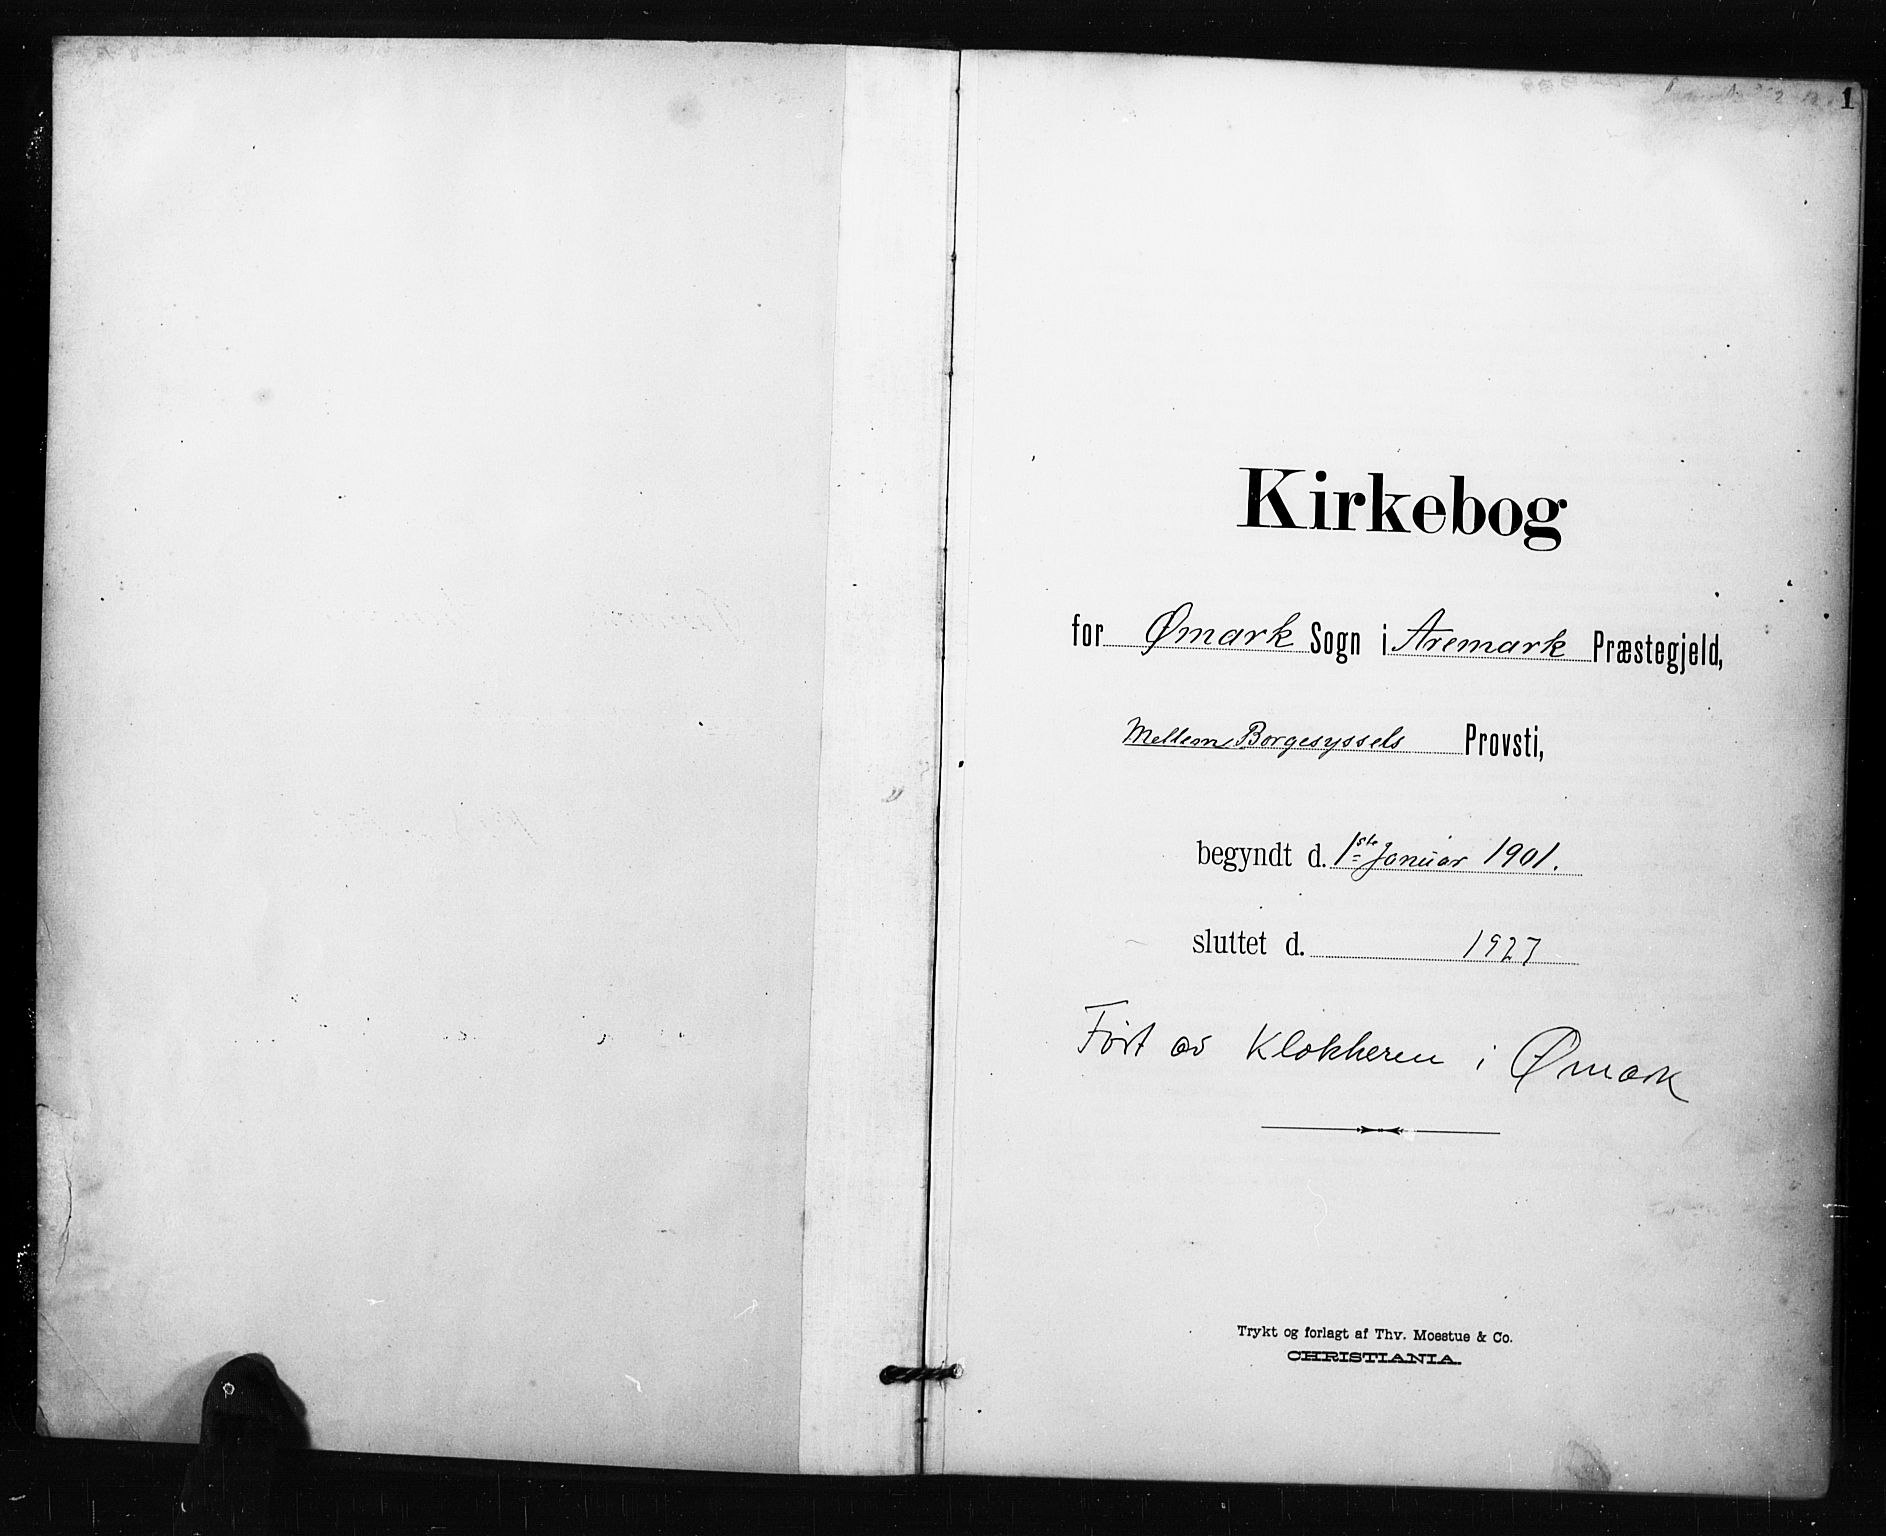 1
Kirkebog
for Ømark Sogn i Aremark Præstegjeld,
Mellem Borgesyssels Provsti,
begyndt d. 1ste Januar 1901.
sluttet d. 1927
Ført av Klokkeren i Ømark
Trykt og forlagt af Thv. Moestue & Co.
CHRISTIANIA.